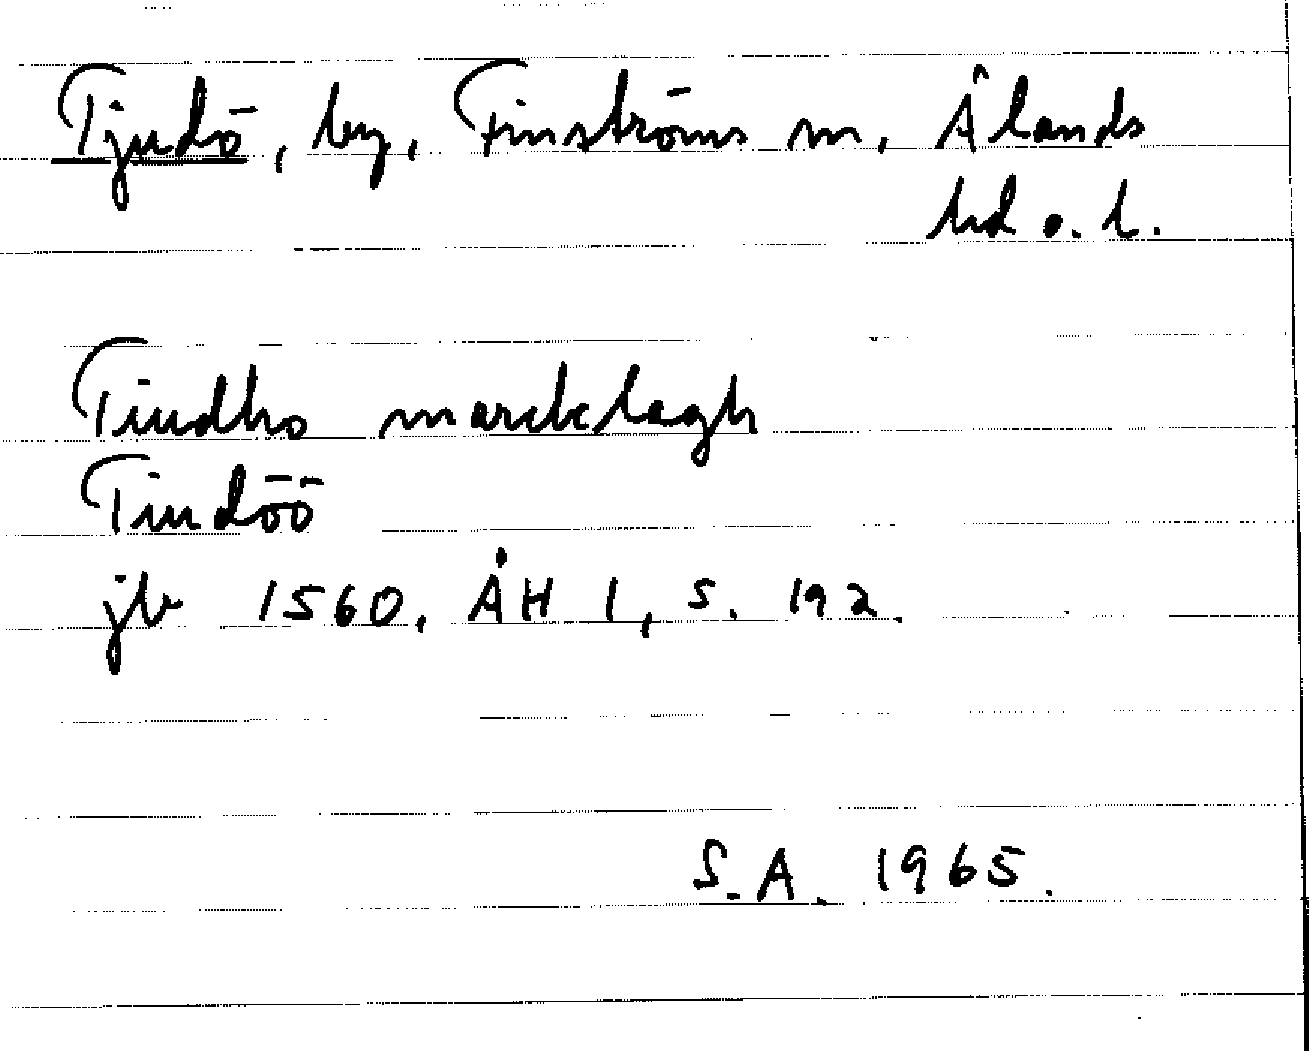 Tjudö, by, Finströms sn, Ålands
hd o. l.
Tiudho marcklagh
Tiudöö
jb 1560, ÅH 1, s. 192.
S.A. 1965.